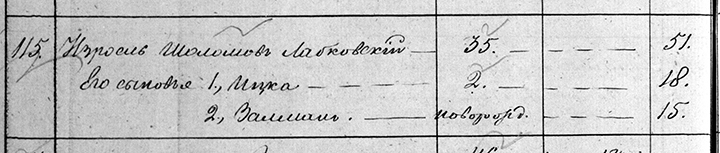 115. Израель Шоломовъ Лабковскій — 35. — — — 51.
Его сыновья 1, Ицка — — — — 2. — — — 18.
2, Залманъ. — новорожд. — — — 15.